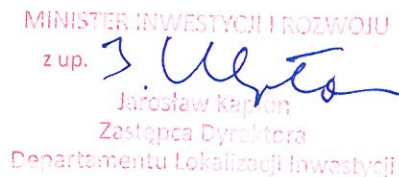 MINISTER INWESTYCJI I ROZWOJU
z up.
Jarosław Kapłon
Zastępca Dyrektora
Departamentu Lokalizacji Inwestycji